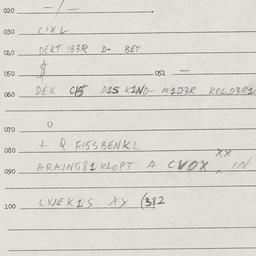 020 — / —
030 CIXL
040 DEKT IB3R D- BET
050 $ 051 —
060 DEK C15 DIS KIND- MID3R KOLD3R1
070 0
080 + Q FI5SBENKL XX
090 ARAJNG81KLOPT A CVOX ^ IN
100 CVJEK1S XY (382